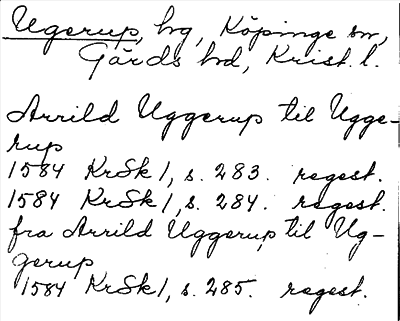 Ugerup, hg, Köpinge sn,
Gärds hd, Krist. l.
Arrild Uggerup til Ugge-
rup
1584 KrSk 1, s. 283. regest.
1584 KrSk 1, s. 284. regest.
fra Arrild Uggerup til Ug-
gerup
1584 KrSk 1, s. 285. regest.